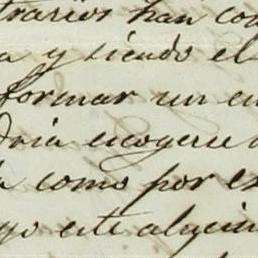 trarios han co
a y siendo el
formar un en
dria escogerse
como por es
go este